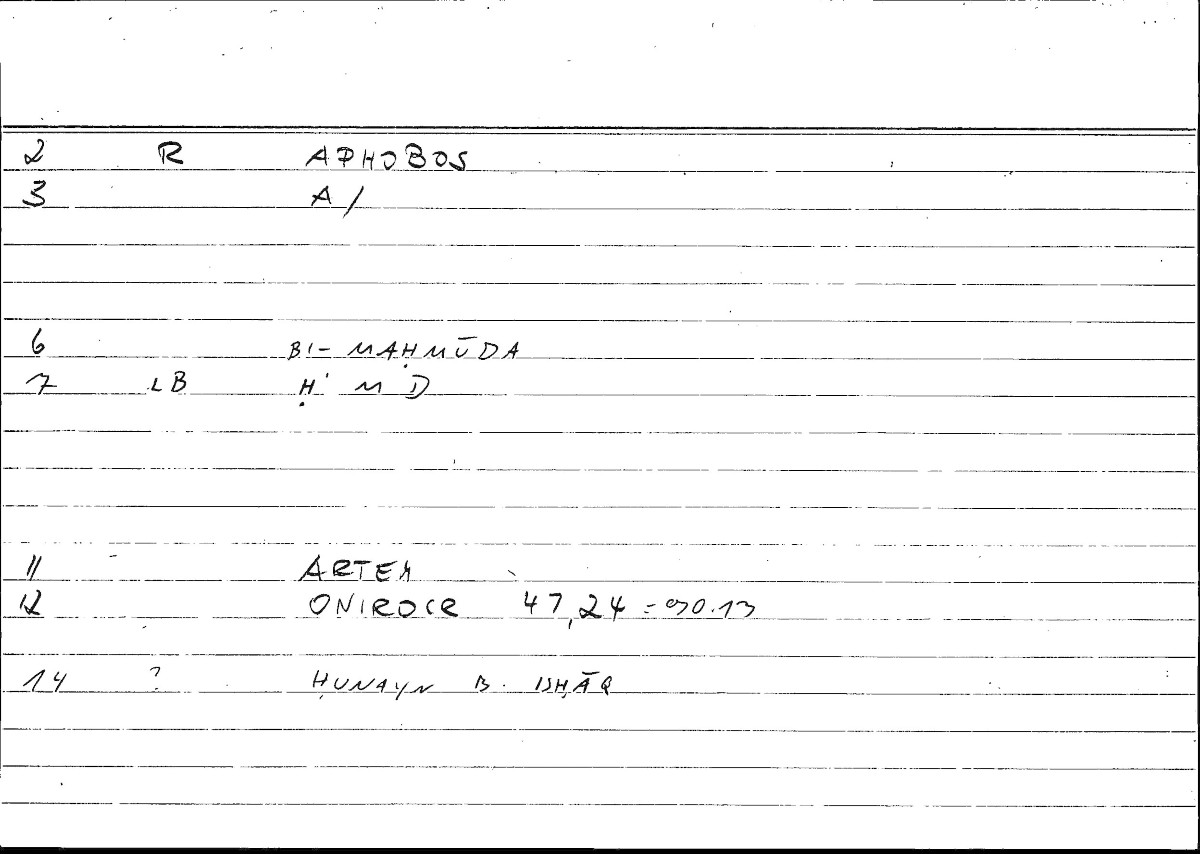 2 R APHOBOS
3 A/
6 BI- MAḤMŪDA
7 LB Ḥ' M D
11 ARTEM
12 ONIROCR 47,24 = 90.13
14 ? ḤUNAYN B. ISḤĀQ